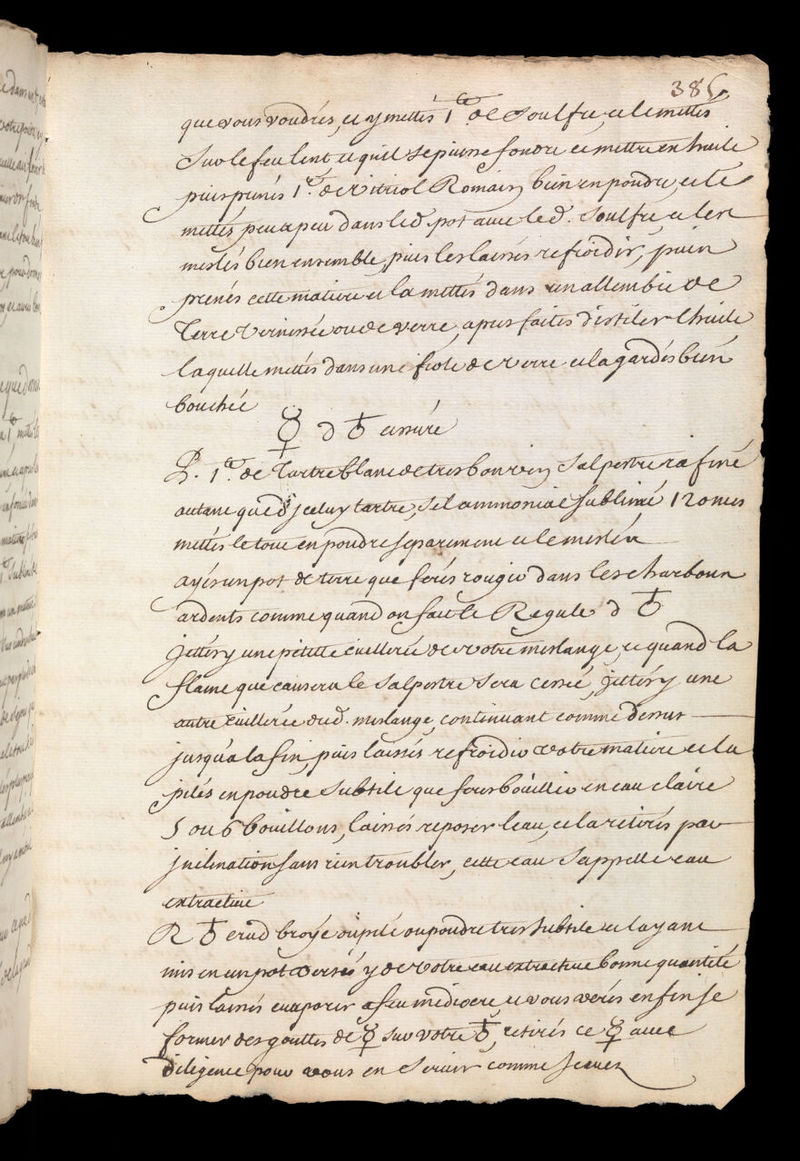 385
que vous voudrés, et y mettés 1 ᵗᵗ de Soulfre, et le mettés
Sur le feu lent et quil se puisse fondre et mettre en huile
puis prenés 1 ᵗᵗ de Vitriol Romain bien en poudre, et le
mettés peu a peu dans led. pot avec led. Soulfre, et les
meslés bien ensemble, puis les laissés refroidir, puis
prenés cette matiere et la mettés dans un allembic de
Terre Vernissée ou de verre, apres faites distiler l'huile
laquelle mettés dans une fiole de verre et la gardés bien
bouchée
☿ d ♁ assuré
℞. 1 ᵗᵗ de Tartre blanc de tres bon vin, Salpestre rafiné
autant que d'jceluy tartre, Sel ammoniac sublimé 12 onces
mettés le tout en poudre separement et le meslés
ayés un pot de terre que ferés rougir dans les charbons
ardents comme quand on fait le Regule d ♁
jettés y une petitte cuellerée de votre meslange, et quand la
flame que causera le Salpestre Sera cessée, jettés y une
autre cuillerée dud. meslange, continuant comme dessus
jusqu'a la fin, puis laissés refroidir votre matiere et la
pilés en poudre Subtile que ferés bouillir en eau claire
5 ou 6 bouillons, laissés reposer l'eau, et la retirés par
jnclination sans rien troubler, cette eau S'appelle eau
extractive
℞ ♁ crud broyé ou pilé en poudre tres subtile et l'ayant
mis en un pot versés y de votre eau extractive bonne quantité
puis laissés evaporer a feu mediocre, et vous verés enfin se
former des gouttes de ☿ sur votre ♁, retirés ce ☿ avec
diligence pour vous en Servir comme scavez